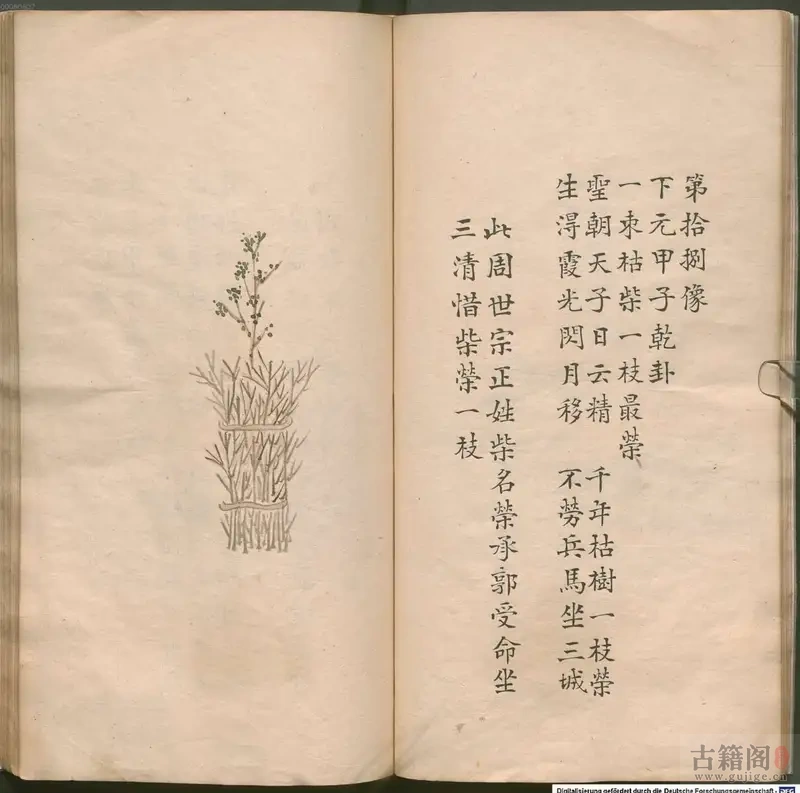 第拾捌像
下元甲子乾卦
一束枯柴一枝最榮
聖朝天子日云精　千年枯樹一枝榮
生淂霞光閃月移　不勞兵馬坐三城
此周世宗正姓柴名榮承郭受命坐
三清惜柴榮一枝
古籍阁
www.gujige.com
Digitalisierung gefördert durch die Deutsche Forschungsgemeinschaft - DFG